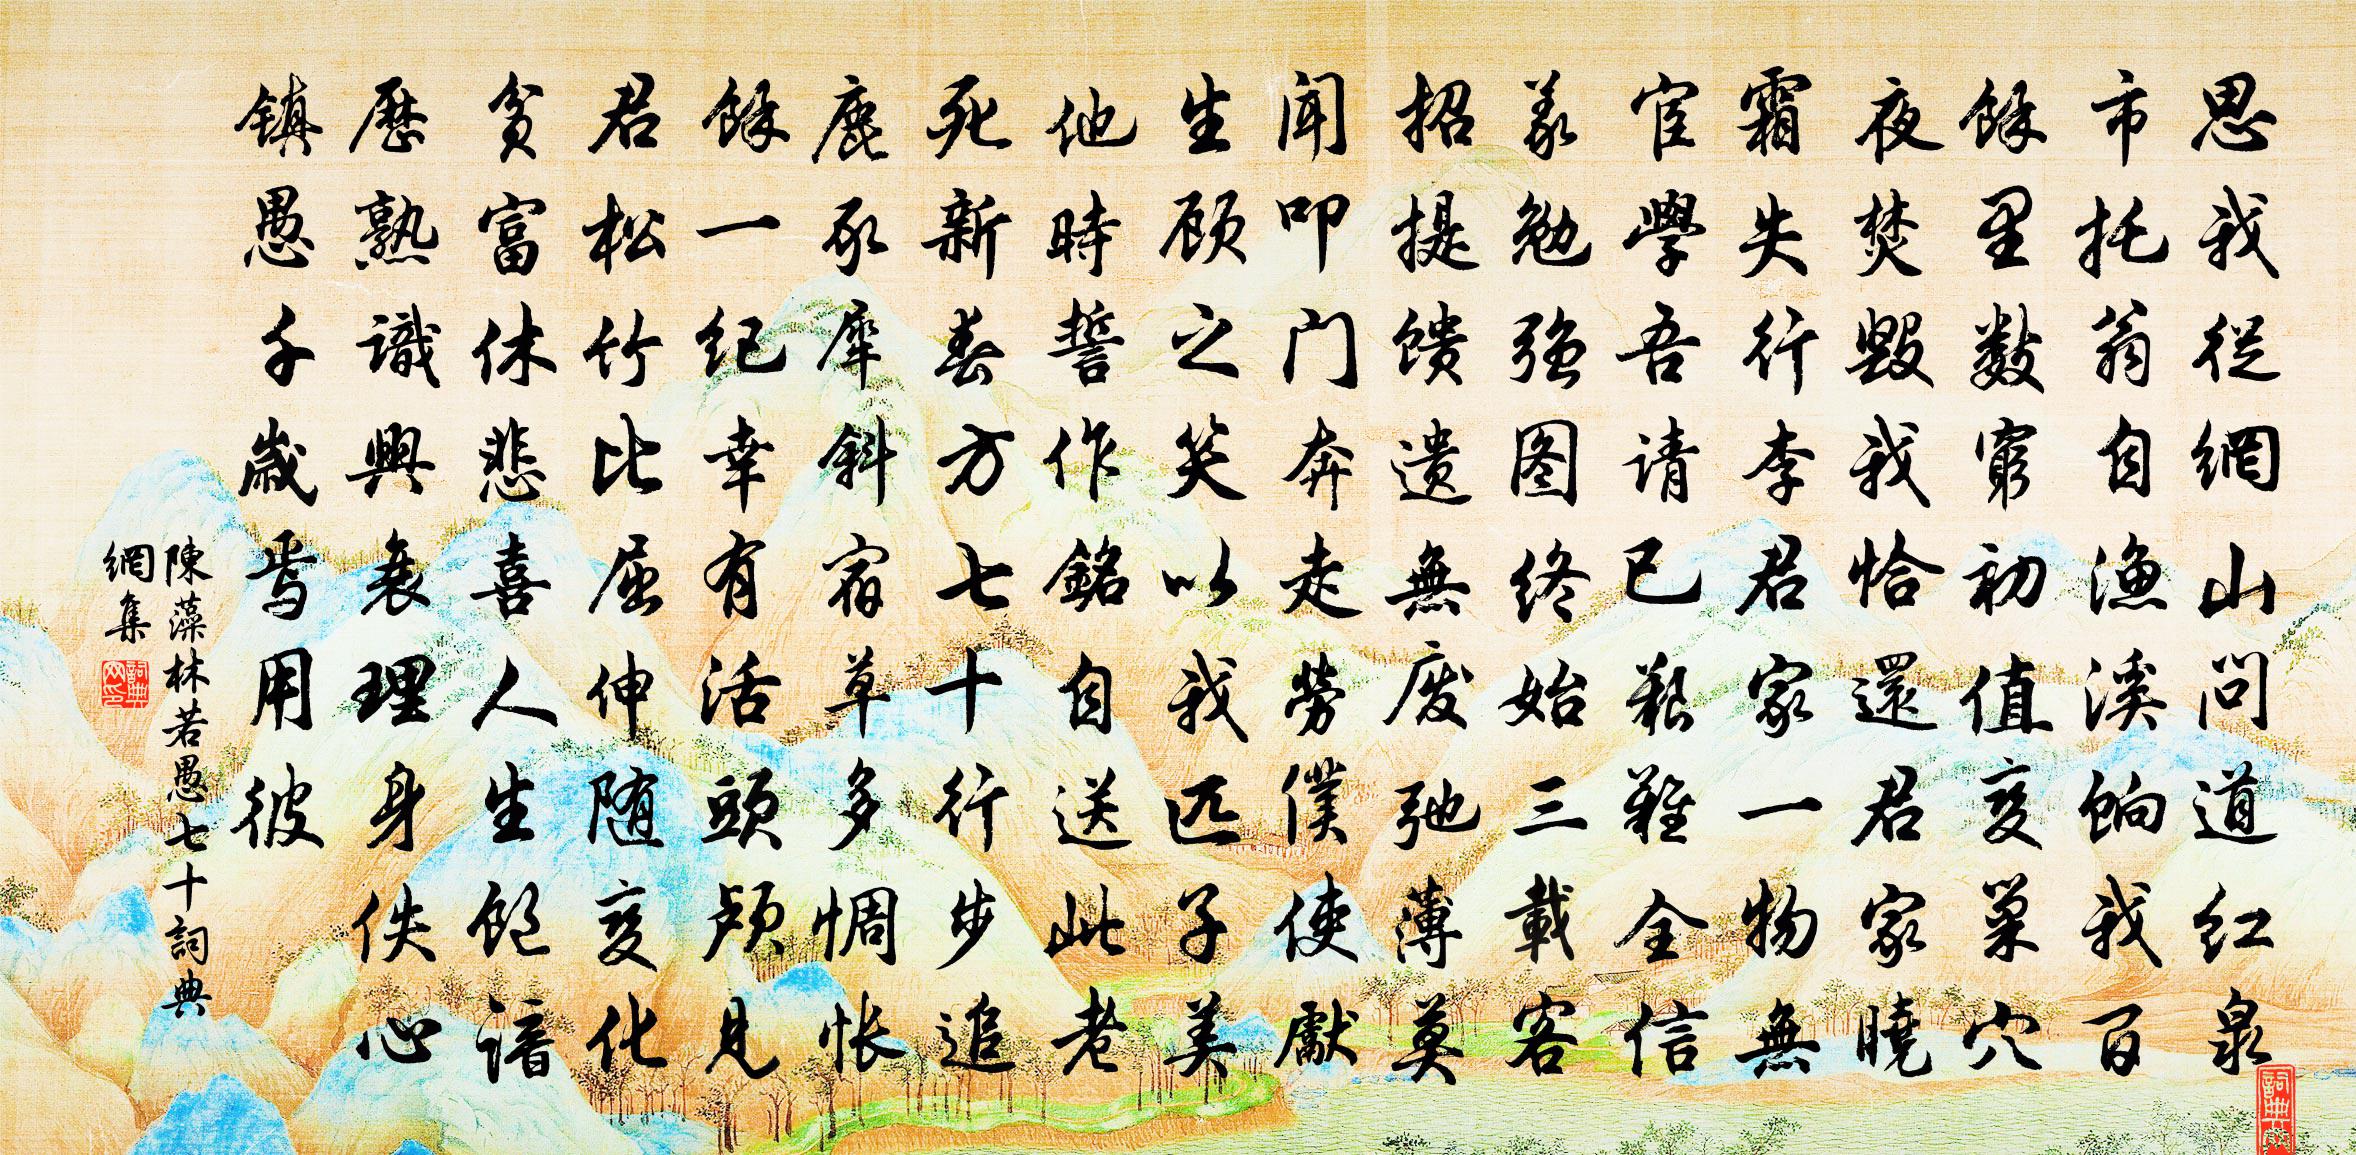 思我從網山問道紅泉
市托翁自漁溪餉我百
餘里數窮初值變巢穴
夜焚毀我恰還君家曉
霜失行李君家一物無
宦學吾请已艱難全信
義勉强图終始三載客
招提馈遗無废弛薄莫
闻叩门奔走勞僕使獻
生顾之笑以我匹子美
他時誓作銘自送此老
死新春方七十行步追
鹿豕犀斜宿草多惆怅
餘一紀幸有活頭颅見
君松竹比屈伸随變化
貧富休悲喜人生飽諳
歷熟識興衰理身佚心
镇愚千歲焉用彼
陳藻林若愚七十詞典
網集